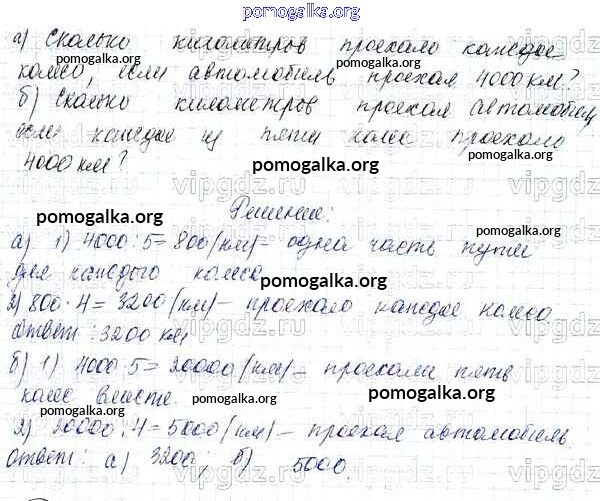 pomogalka.org
а) Сколько километров проехало каждое
колесо, если автомобиль проехал 4000 км?
б) Сколько километров проехал автомобиль,
если каждое из пяти колес проехало
4000 км?
Решение:
а) 1) 4000 : 5 = 800 (км) – одна часть пути
для каждого колеса
2) 800 · 4 = 3200 (км) – проехало каждое колесо
Ответ: 3200 км.
б) 1) 4000 · 5 = 20000 (км) – проехали пять
колес вместе.
2) 20000 : 4 = 5000 (км) – проехал автомобиль.
Ответ: а) 3200; б) 5000.